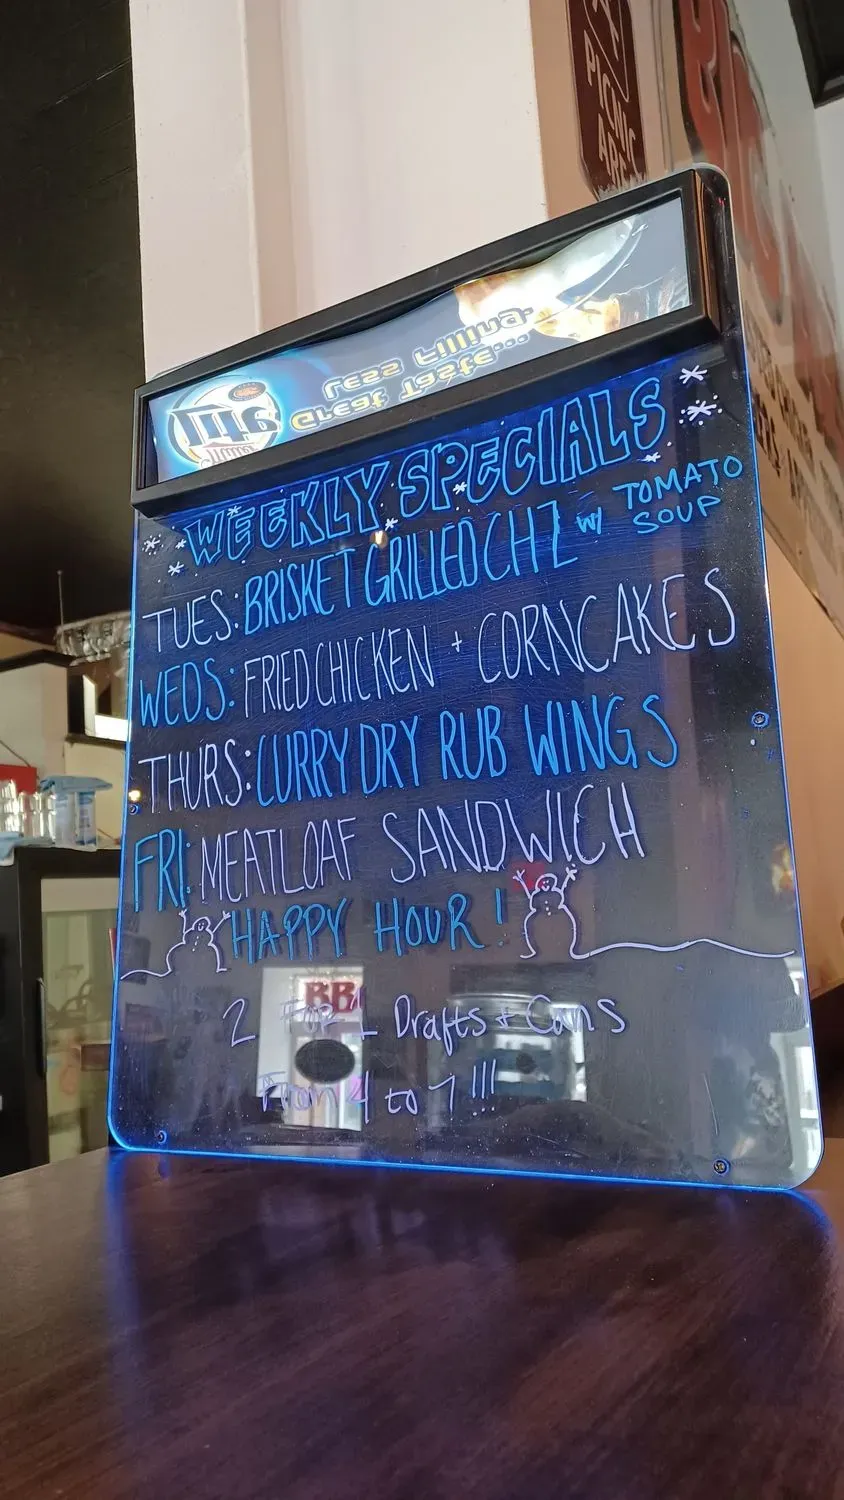 PICNIC
BIG
Lite
Miller
Great Taste...
Less Filling.
WEEKLY SPECIALS
TUES: BRISKET GRILLED CHZ w/ TOMATO SOUP
WEDS: FRIED CHICKEN + CORNCAKES
THURS: CURRY DRY RUB WINGS
FRI: MEATLOAF SANDWICH
HAPPY HOUR!
2 FOR 1 Drafts + Cans
From 4 to 7!!!